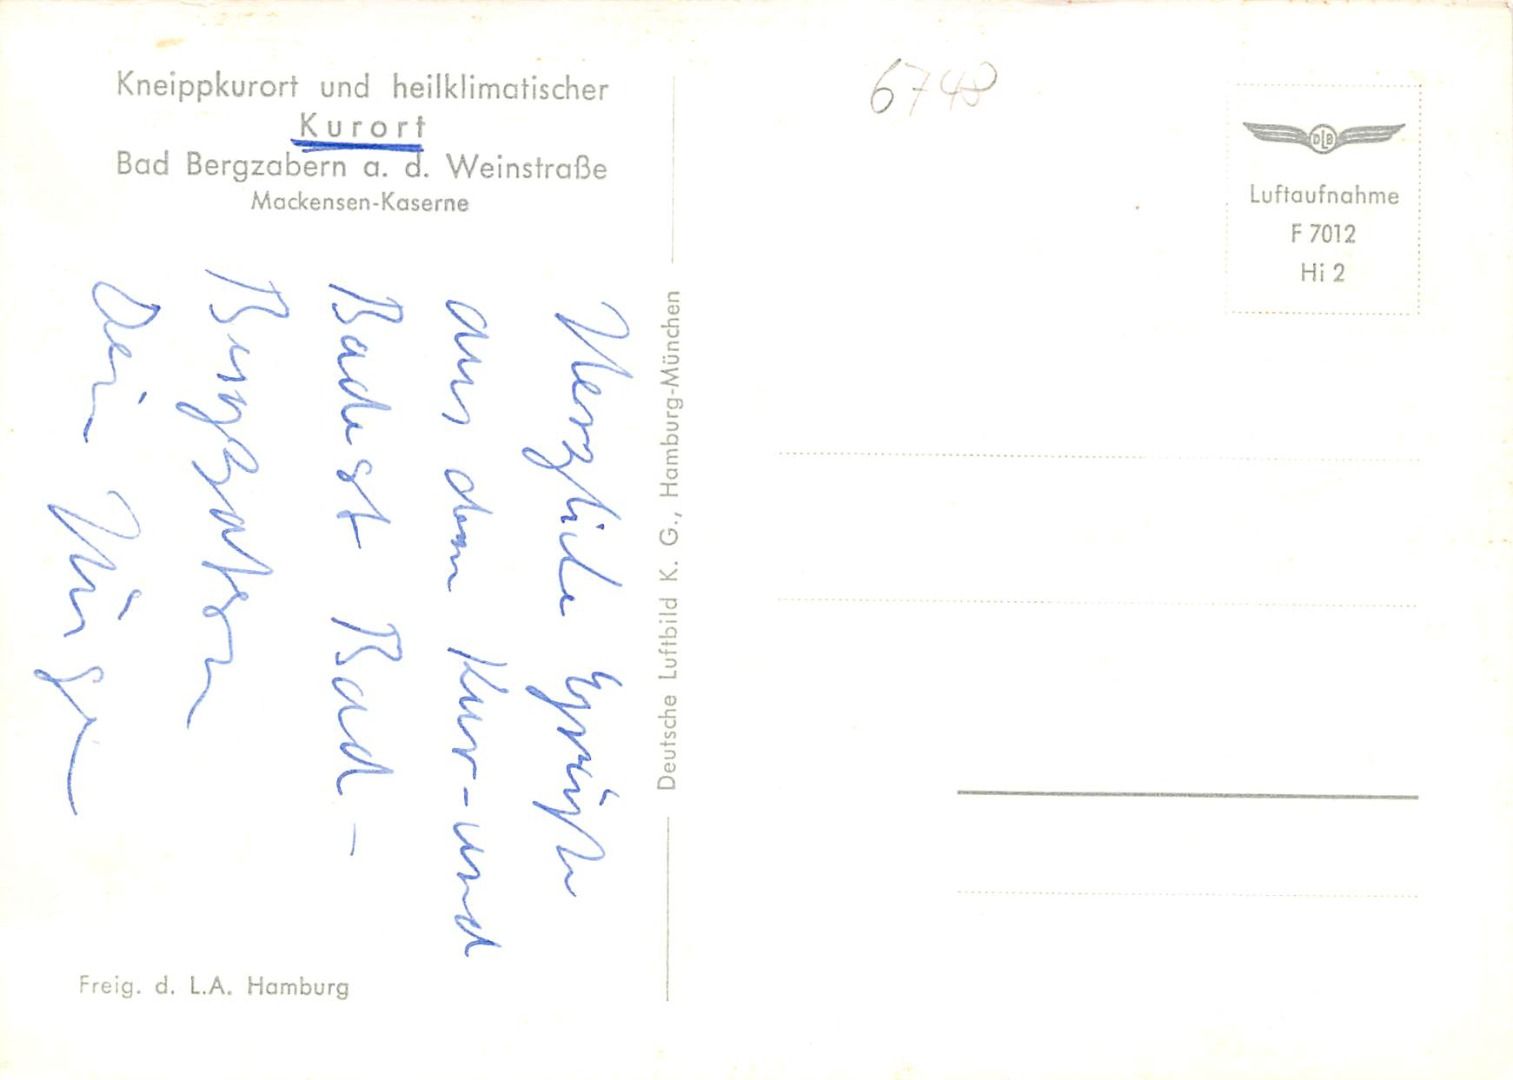 Kneippkurort und heilklimatischer
Kurort
Bad Bergzabern a. d. Weinstraße
Mackensen-Kaserne
Herzliche Grüße
aus dem Kur-und
Badeort Bad-
Bergzabern
Dein
Freig. d. L.A. Hamburg
Deutsche Luftbild K. G., Hamburg-München
6748
DLB
Luftaufnahme
F 7012
Hi 2